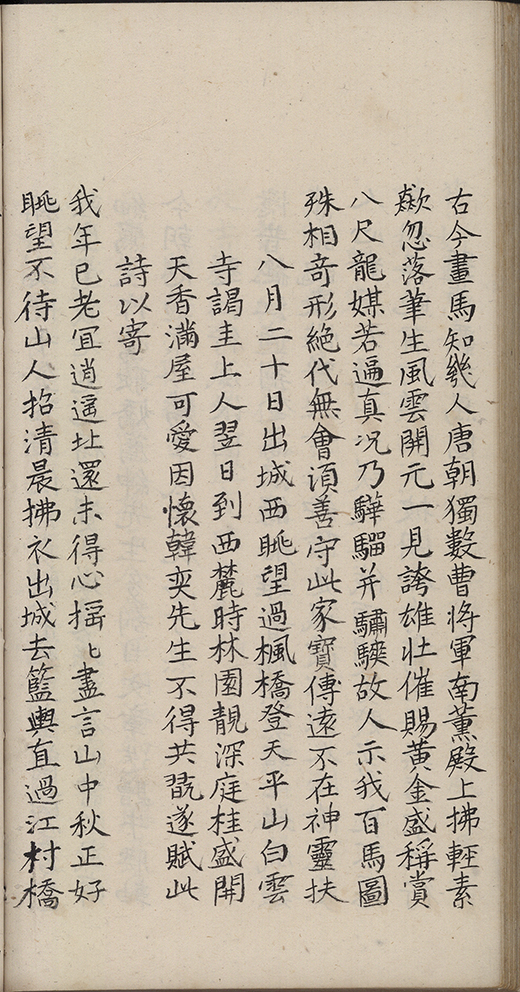 古今畫馬知幾人唐朝獨數曹將軍南薰殿上拂輕素
歘忽落筆生風雲開元一見誇雄壯催賜黃金盛稱賞
八尺龍媒若逼真况乃驊騮并驌騻故人示我百馬圖
殊相奇形絶代無會湏善守此家寶傳遠不在神靈扶
八月二十日出城西眺望過楓橋登天平山白雲
寺謁圭上人翌日到西麓時林園靚深庭桂盛開
天香滿屋可愛因懷韓奕先生不得共翫遂賦此
詩以寄
我年已老冝逍遥北還未得心揺〻盡言山中秋正好
眺望不待山人招清晨拂衣出城去籃輿直過江村橋